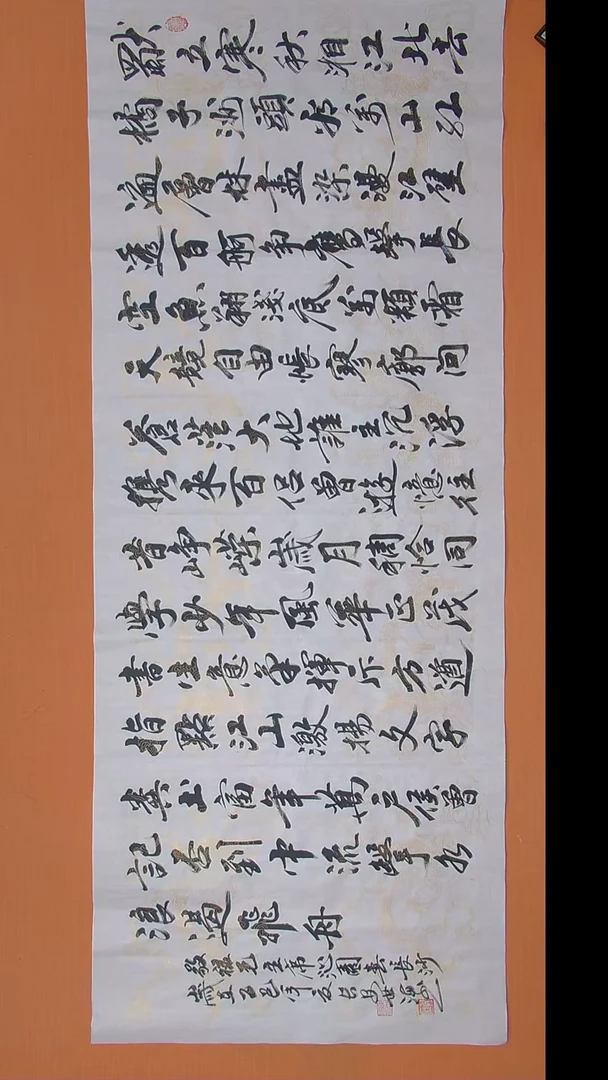 獨立寒秋湘江北去
橘子洲頭看萬山红
遍層林盡染漫江碧
透百舸争鷹擊長
空魚翔淺底萬類霜
天競自由悵寥廓问
蒼茫大地誰主沉浮
攜來百侣曾遊憶往
昔峥嵘歲月稠恰同
學少年風華正茂
書生意氣揮斥方遒
指點江山激揚文字
糞土當年萬户侯曾
記否到中流擊水
浪遏飛舟
敬錄毛主席沁園春長沙
歲在乙巳年夏